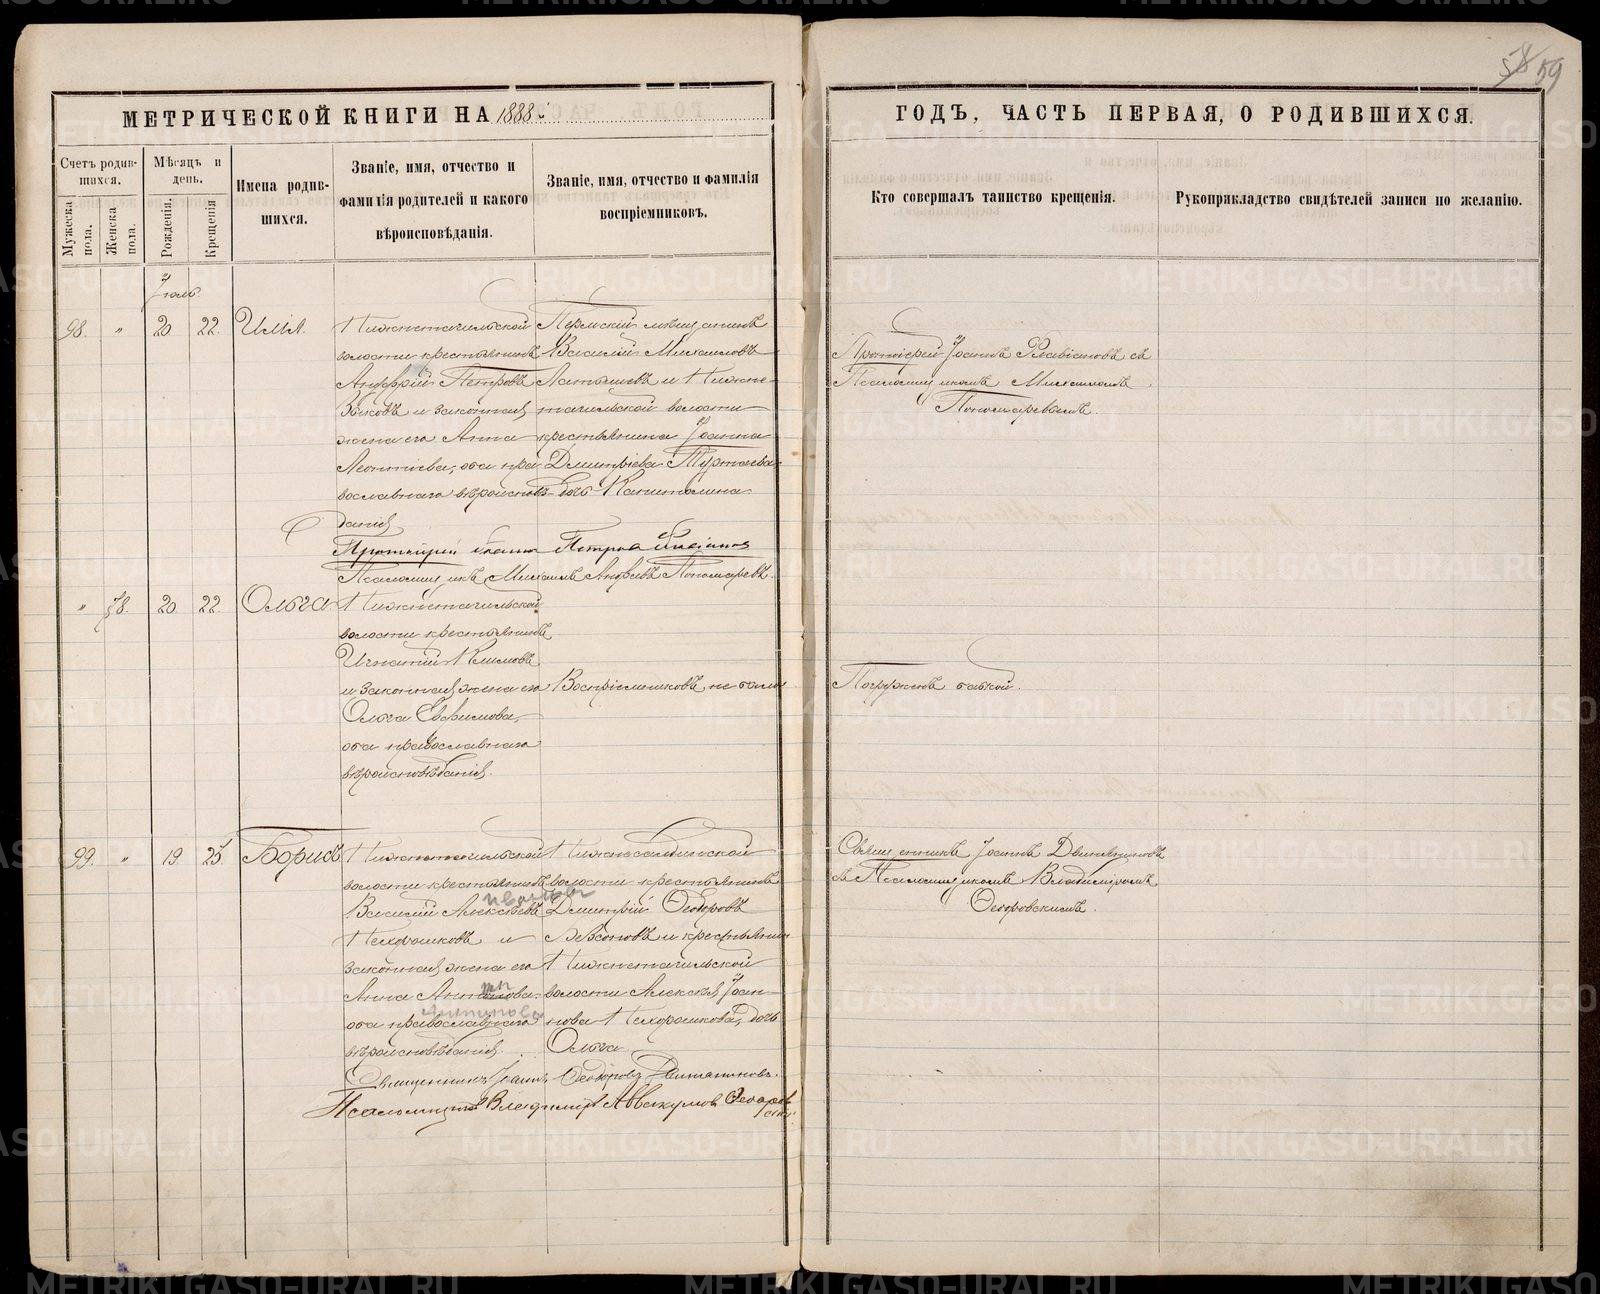 58 59
МЕТРИЧЕСКОЙ КНИГИ НА 1888 й
ГОДЪ, ЧАСТЬ ПЕРВАЯ, О РОДИВШИХСЯ.
Счетъ родив-
шихся.
Мужеска пола.
Женска пола.
Мѣсяцъ и
день.
Рожденія.
Крещенія
Имена родив-
шихся.
Званіе, имя, отчество и
фамилія родителей и какого
вѣроисповѣданія.
Званіе, имя, отчество и фамилія
воспріемниковъ.
Кто совершалъ таинство крещенія.
Рукоприкладство свидѣтелей записи по желанію.
Іюль.
98. " 20 22 Илія.
Нижнетагильской
волости крестьянинъ
Андрей Петровъ
Зыковъ и законная
жена его Анна
Леонтіева, оба пра-
вославнаго вѣроисповѣ-
данія
Пермскій мѣщанинъ
Василій Михаиловъ
Латышевъ и Нижне-
тагильской волости
крестьянина Іоанна
Димитріева
дочь Капитолина
Протоіерей Іоаннъ Флавіановъ съ
Псаломщикомъ Михаиломъ
Пономаревымъ.
Протоіерей Іоаннъ Петровъ Флавіановъ
Псаломщикъ Михаилъ Андреевъ Пономаревъ.
" 78. 20 22 Ольга
Нижнетагильской
волости крестьянинъ
Игнатій Климовъ
и законная жена его
Ольга Евфимова,
оба православнаго
вѣроисповѣданія.
Воспріемниковъ не было
Погружена бабкой.
99. " 19 25 Борисъ
Нижнетагильской
волости крестьянинъ
Василій Алексѣевъ
Ивановъ
и
законная жена его
Анна Антонова
Антипова
оба православнаго
вѣроисповѣданія.
Нижнесалдинской
волости крестьянинъ
Димитрій Ѳеодоровъ
и крестьянина
Нижнетагильской
волости Алексѣя Іоан-
нова дочь
Ольга.
Священникъ Іоаннъ Двиняниновъ
съ Псаломщикомъ Владиміромъ
Ѳедоровскимъ.
Священникъ Іоаннъ Ѳеодоровъ Двиняниновъ.
Псаломщикъ Владиміръ Аввакумовъ Ѳедоров
скій
METRIKI.GASO-URAL.RU